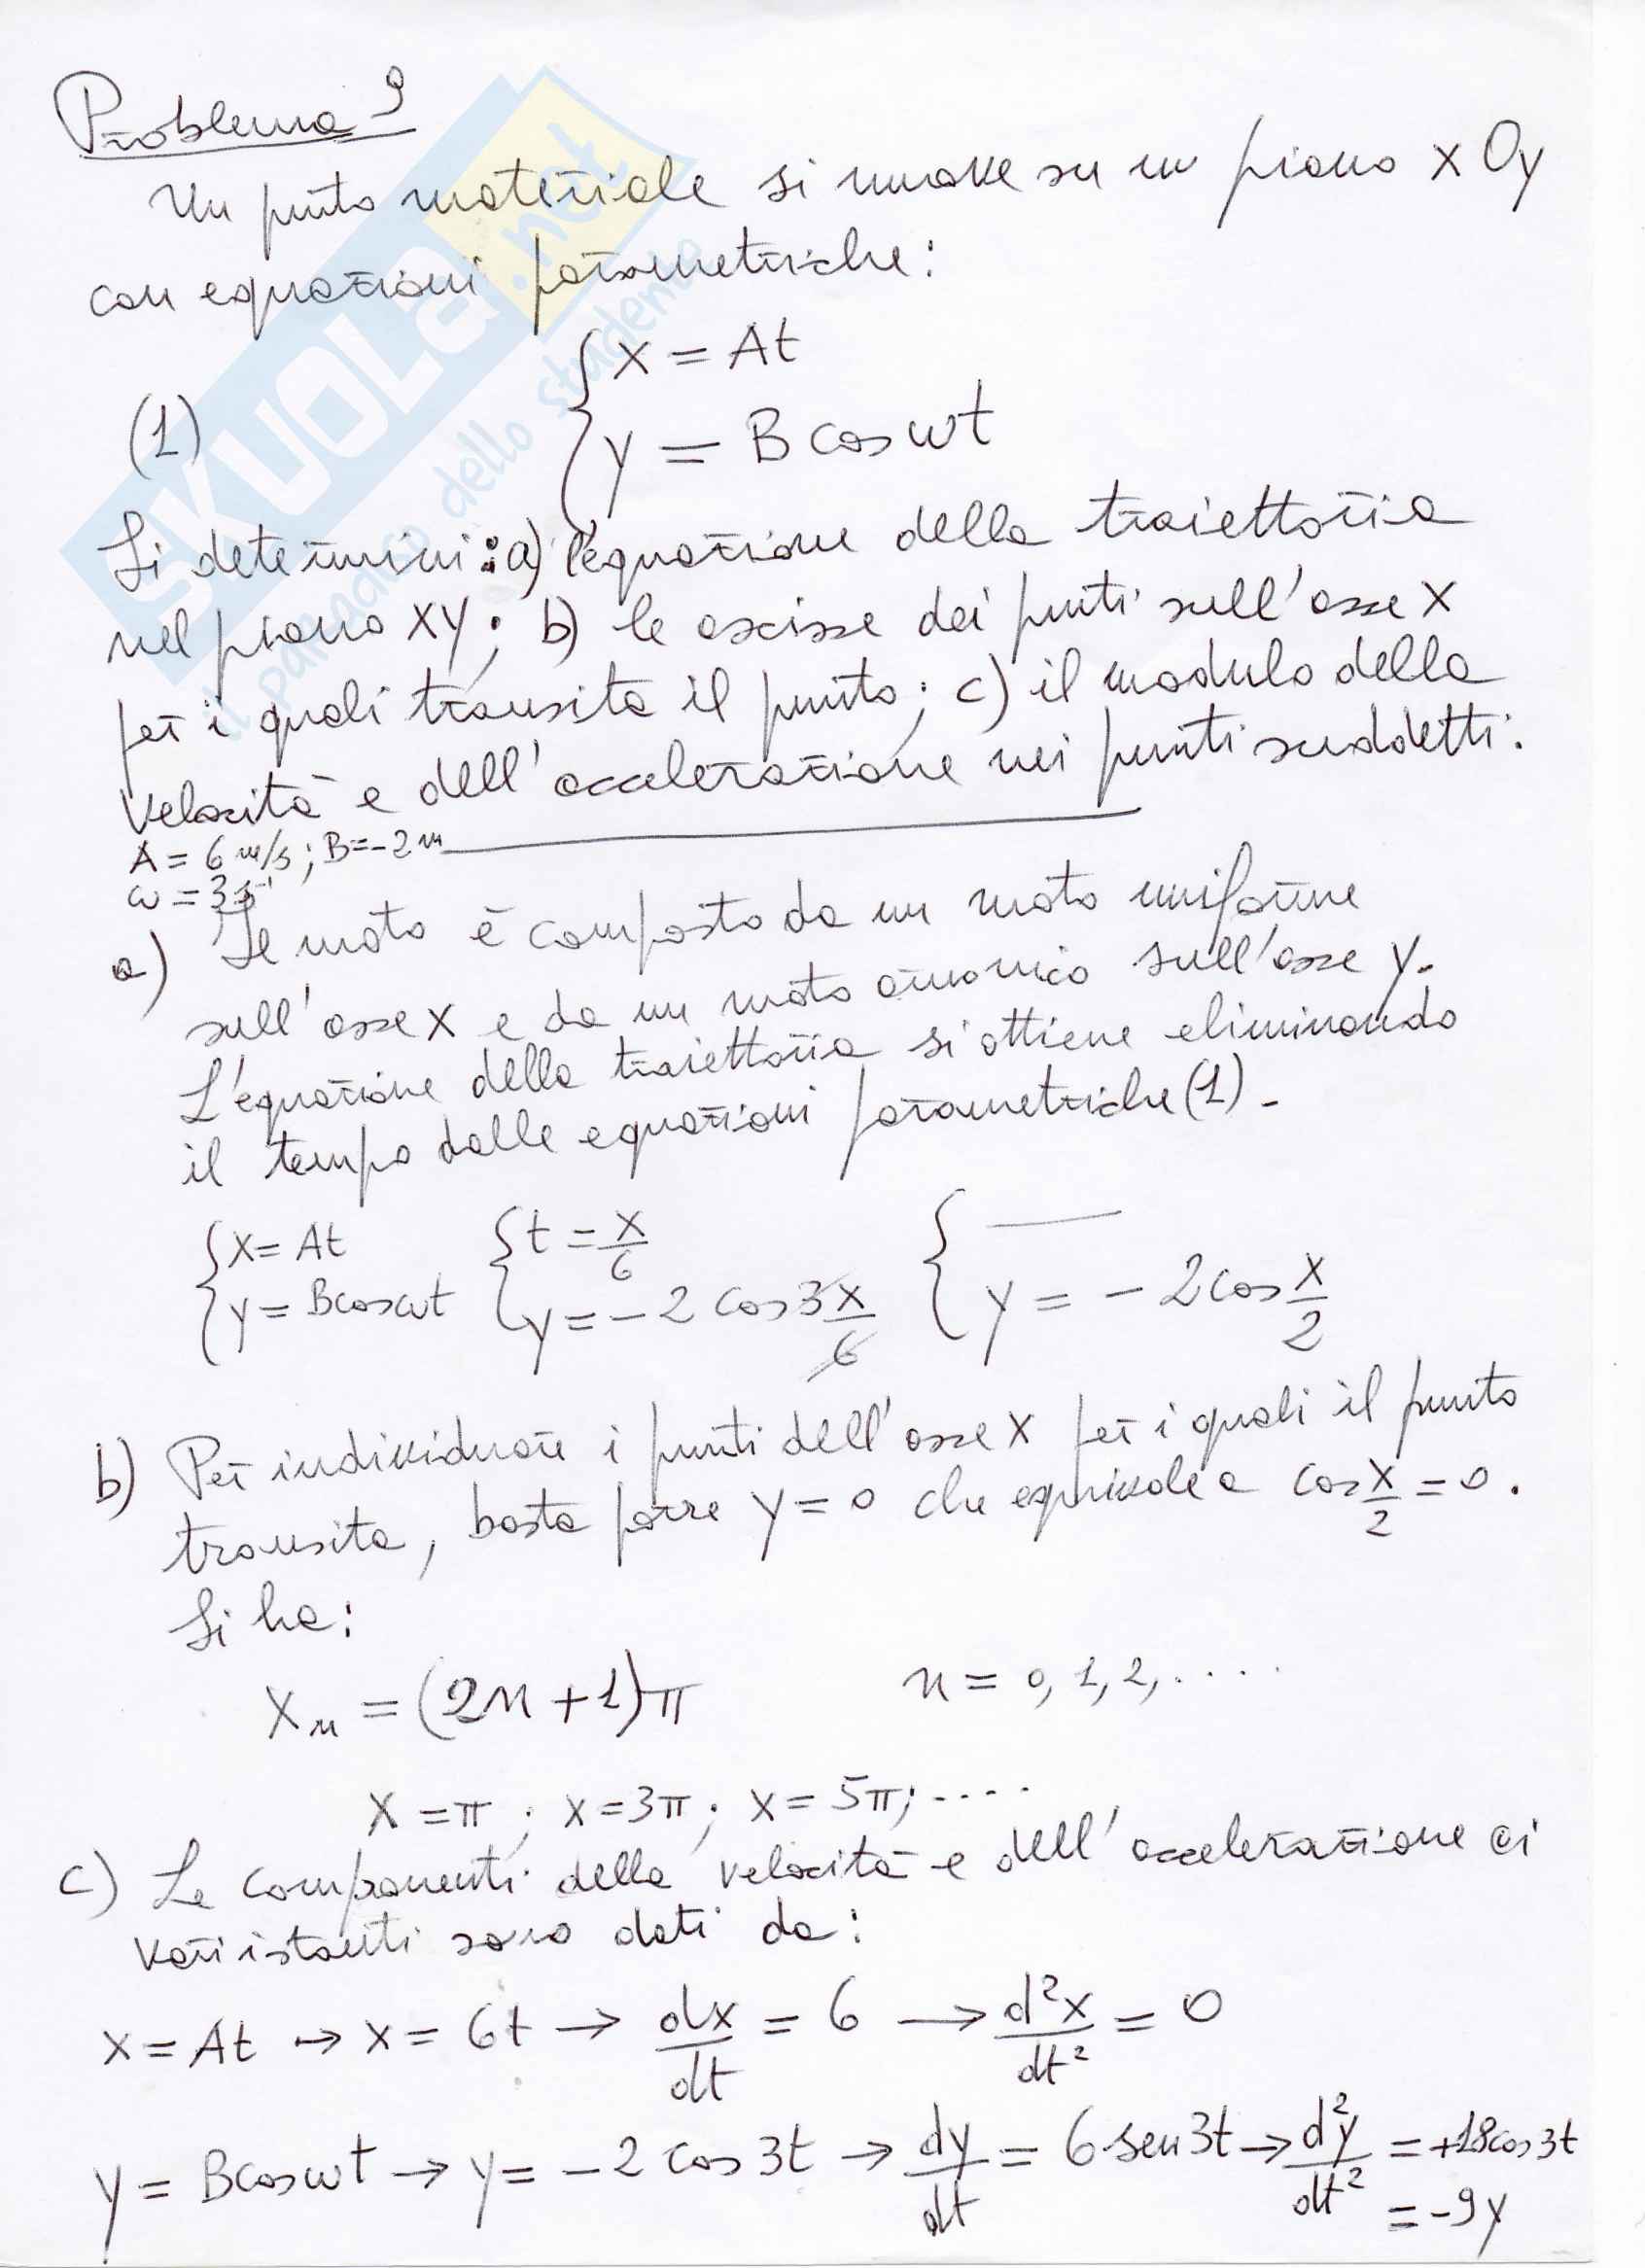 Problema 9
Un punto materiale si muove su un piano xOy
con equazioni parametriche:
x = At
(1)
y = B cos ωt
Si determini: a) l'equazione della traiettoria
nel piano xy; b) le ascisse dei punti sull'asse x
per i quali transita il punto; c) il modulo della
velocità e dell'accelerazione nei punti suddetti.
A = 6 m/s; B = -2 m
ω = 3 s⁻¹
a) Il moto è composto da un moto uniforme
sull'asse x e da un moto armonico sull'asse y.
L'equazione della traiettoria si ottiene eliminando
il tempo dalle equazioni parametriche (1).
{x = At {t = x/6 { —
{y = B cos ωt {y = -2 cos 3 x/6 {y = -2 cos x/2
b) Per individuare i punti dell'asse x per i quali il punto
transita, basta porre y = 0 che equivale a cos x/2 = 0.
Si ha:
xₙ = (2n+1)π n = 0, 1, 2, ....
x = π; x = 3π; x = 5π; ....
c) Le componenti della velocità e dell'accelerazione ai
vari istanti sono dati da:
x = At → x = 6t → dx/dt = 6 → d²x/dt² = 0
y = B cos ωt → y = -2 cos 3t → dy/dt = 6 sen 3t → d²y/dt² = +18 cos 3t
= -9y
SKUOLA.net
il paradiso dello studente